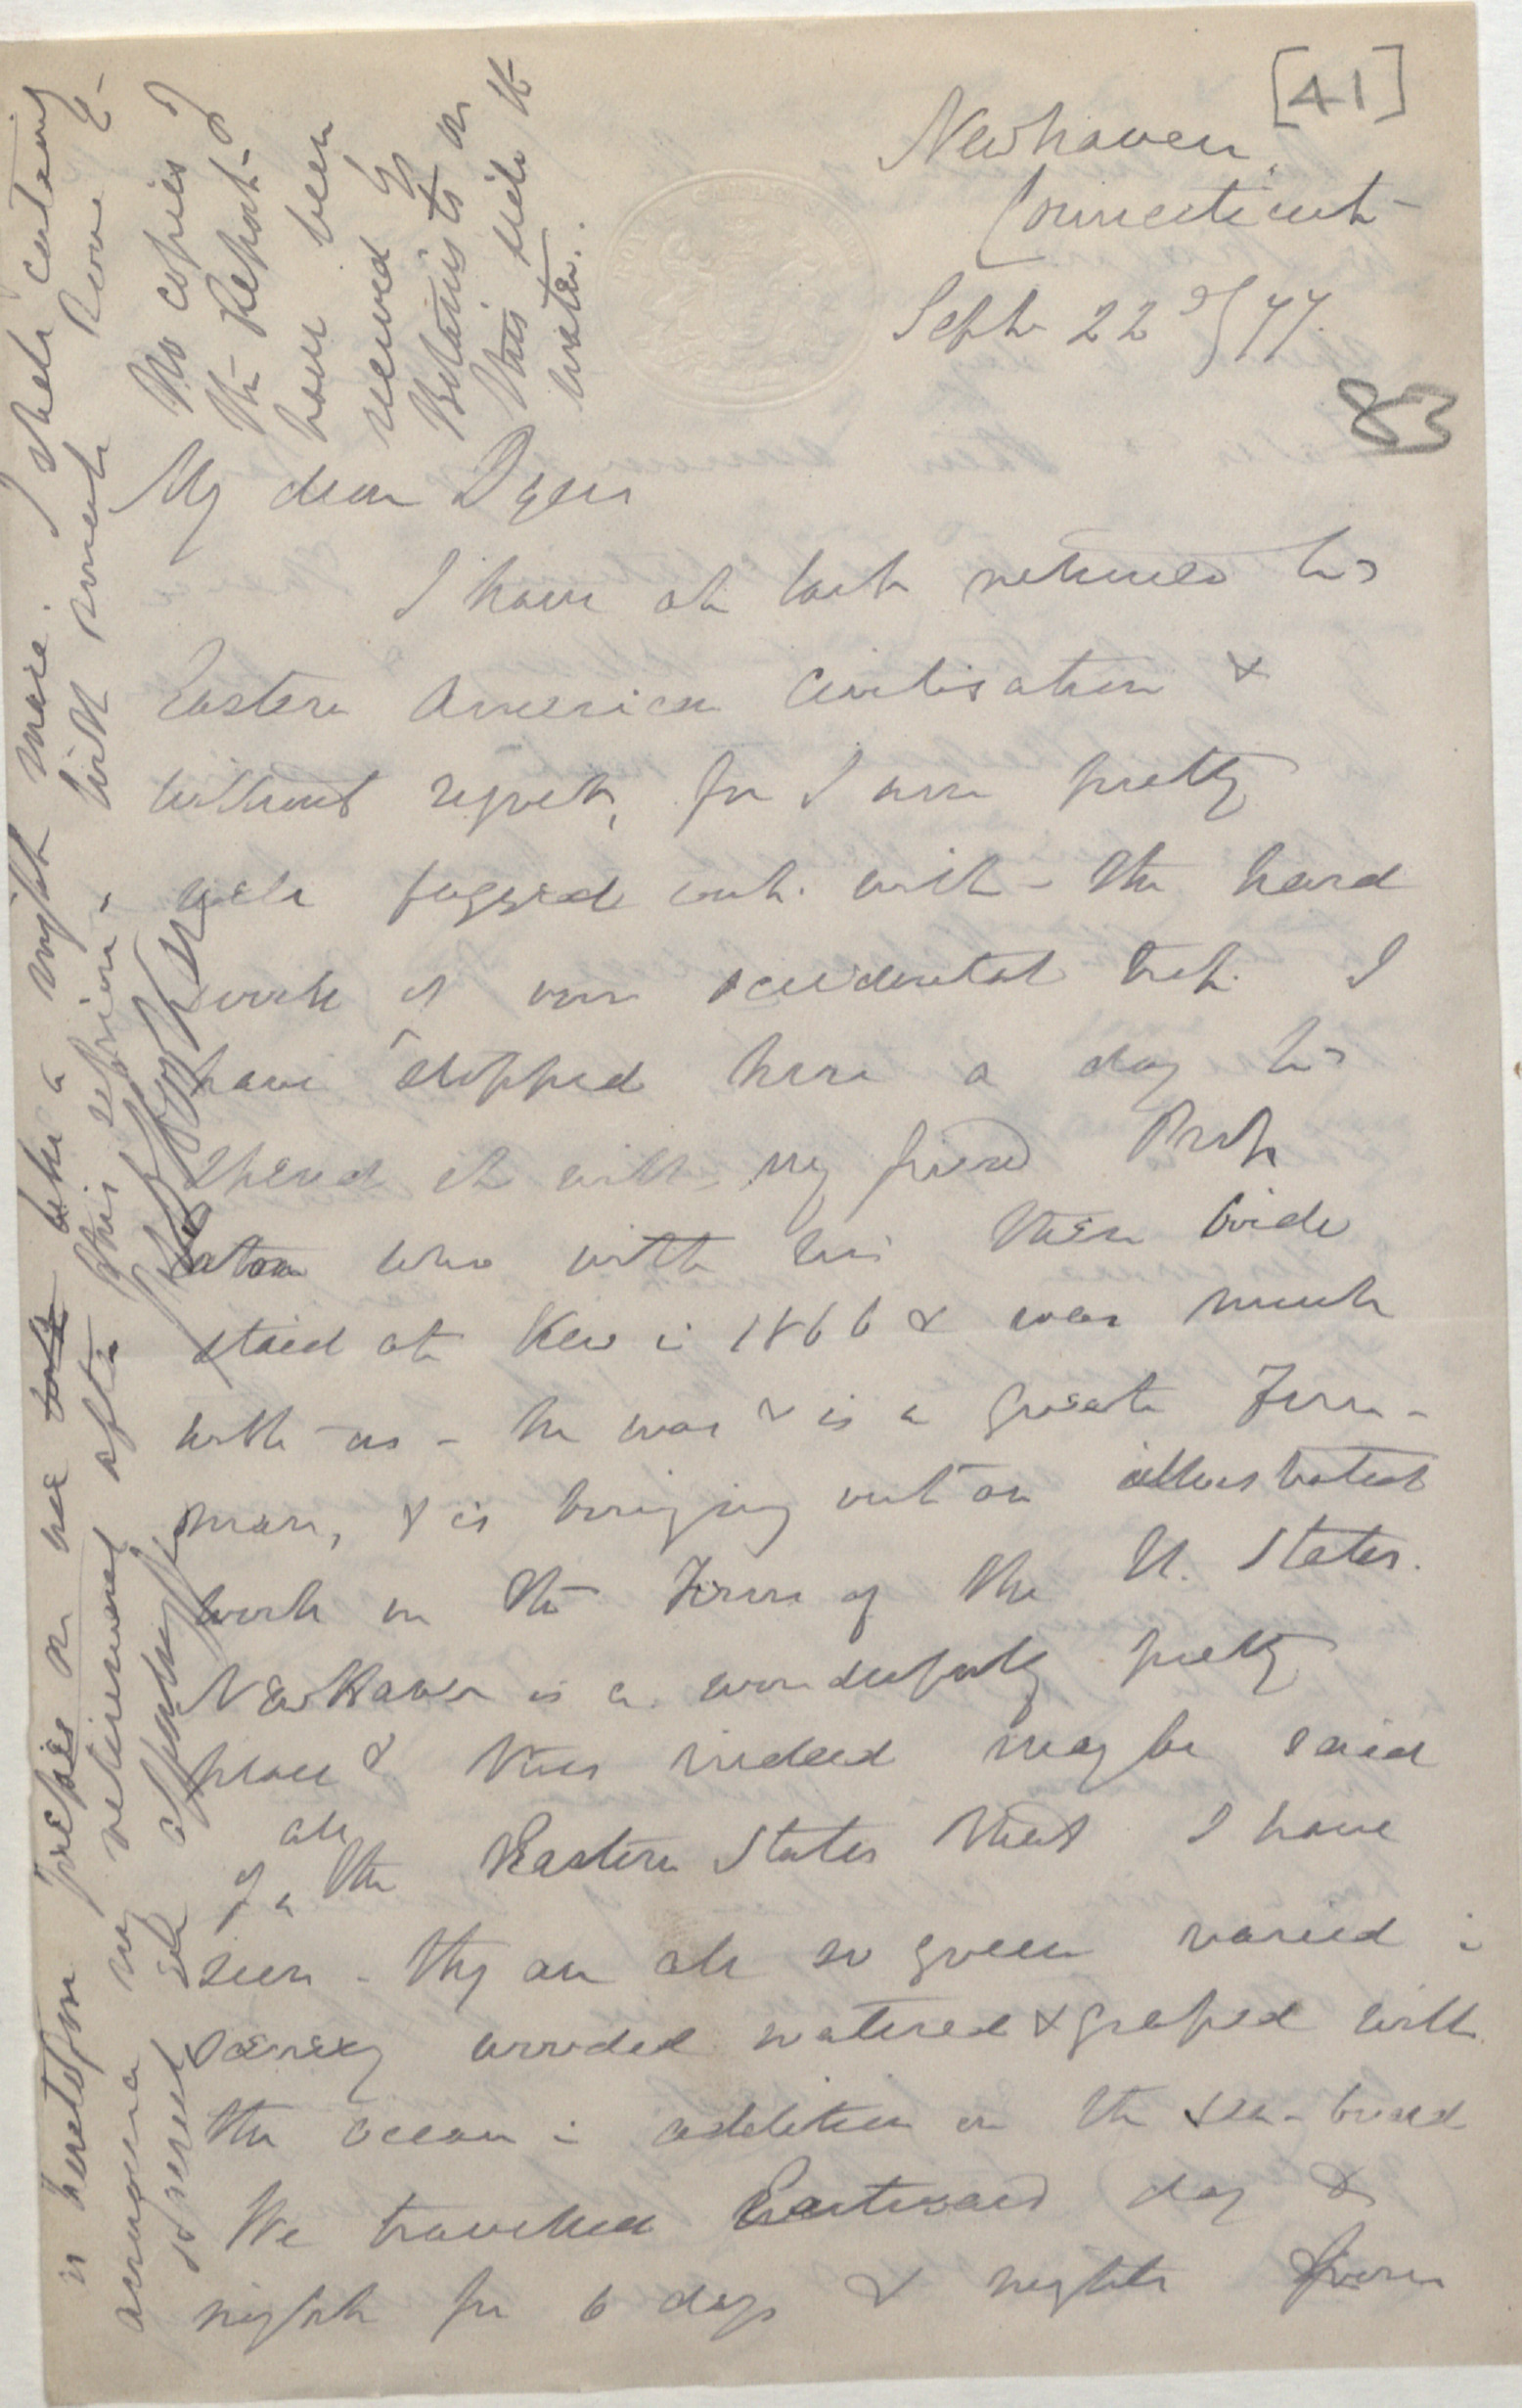 [41]
Newhaven,
Connecticut
Sept 22d/77.
83
My dear Dyer
I have at last returned to
Eastern American Civilisation &
without regret, for I am pretty
well fagged out with the hard
work of our occidental trip. I
have stopped here a day to
spend it with my friend Prof
Eaton who with his then bride
staid at Kew in 1866 & was much
with us - he was & is a great Fern-
man, & is bringing out an illustrated
work on the Ferns of the U. States.
NewHaven is a wonderfully pretty
place & this indeed may be said
of all the Eastern States that I have
seen - they are all so green varied in
scenery wooded watered & with
the ocean in addition on the sea-board
We travelled Eastward day &
night for 6 days & nights from
No copies of
the Report
have been
received by
Botanists on
this side the
water.
is heretofore on me like a night mare. I shall certainly
my retirement after this with some
Ever affectionately
Jos D Hooker